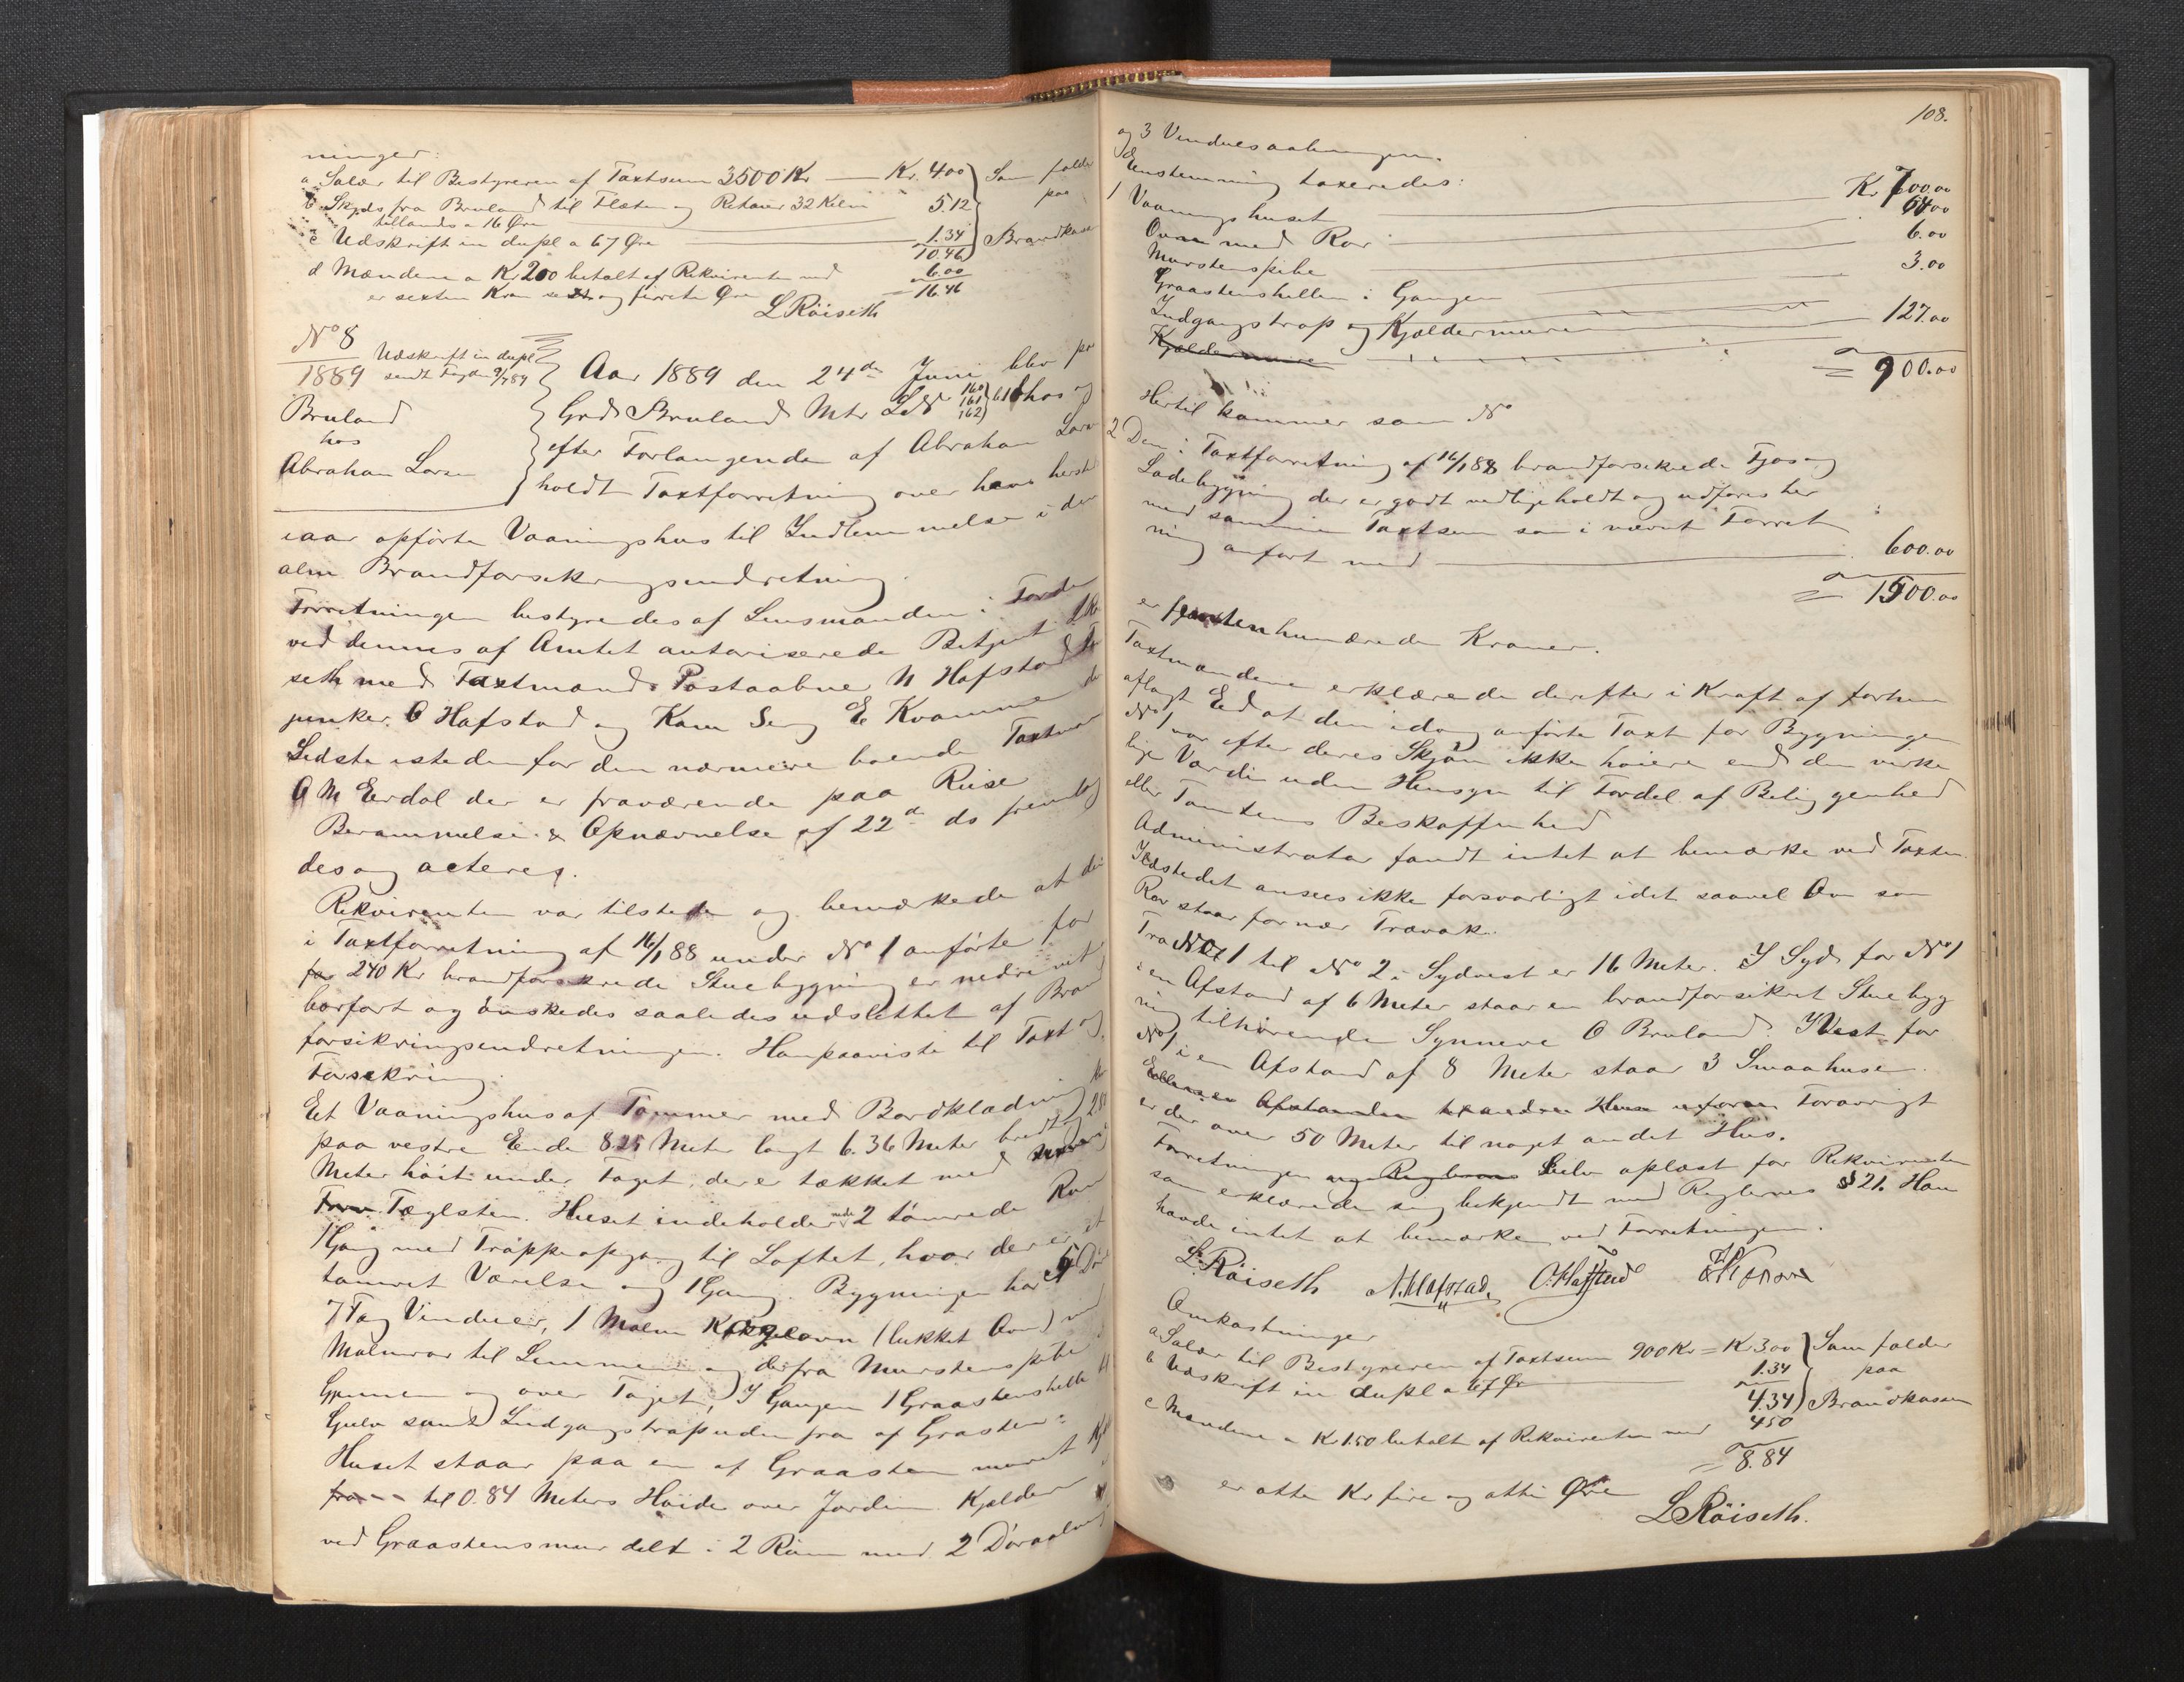 ninger:
a Salær til Bestyreren af Taxtsum 3500 Kr — Kr. 4 00 } Som falder
b Skyds fra Bruland til Flæten og Retour 32 Kilm " 5.12 } paa
tillands a 16 Øre
c Udskrift in dupl a 67 Øre — 1.34 } Brandkassen
10.46
d Mændene a Kr 2 00 betalt af Rekvirenten med 6.00
er sexten Kron sex og firreti Øre = 16.46
L Röiseth
No 8
1889
Udskrift in dupl
sendt Fogden 9/7 89
Bruland
hos
Abraham Larsen
Aar 1889 den 24de Juni blev paa
Grd Bruland Mtr L No 160 161 162 hos og
efter Forlangende af Abraham Lars
holdt Taxtforretning over hans herst
iaar opførte Vaaningshus til Indlemmelse i den
alm Brandforsikringsindretning.
Forretningen bestyredes af Lensmanden i Førde
ved dennes af Amtet autoriserede Betjent L Rö
seth med Taxtmænd: Postaabner N Hafstad
junker. O Hafstad og Kam Serg E Kvamme d
Sidste istedenfor den nærmere boende Taxtm
O M Erdal der er fraværende paa Reise
Berammelse & Opnævnelse af 22de ds fremlag
des og acteres.
Rekvirenten var tilstede og bemærkede at den
i Taxtforretning af 16/1 88 under No 1 anførte for
for 240 Kr brandforsikrede Stuebygning er nedrevet
borført og ønskedes saaledes udslettet af Brand
forsikringsindretningen. Han paaviste til Taxt og
Forsikring:
Et Vaaningshus af Tømmer med Bordklædning
paa vestre Ende 8.25 Meter langt 6.36 Meter bredt
Meter høit under Taget, der er tækket med
Tæglsten. Huset indeholder nede 2 tømrede Rum
1 Gang med Trappeopgang til Loftet, hvor der er et
tømret Værelse og 1 Gang. Bygningen har 5 Dør
7 Fag Vinduer, 1 Malm Kogeovn (lukket Ovn) med
Malmrør til Lemmen og derfra Murstenspibe
Gjennem og over Taget, I Gangen 1 Graastenshelle
Gulv samt Indgangstrap udenfra af Graasten.
Huset staar paa en af Graasten muret
fra til 0.84 Meters Høide over Jorden. Kjælder
ved Graastensmur delt i 2 Rum med 2 Døraabning
108.
og 3 Vinduesaabninger.
Enstemmig taxeredes:
1 Vaaningshuset — Kr 700.00
Ovn med Rør — 64.00
Murstenspibe — 6.00
Graastenshellen i Gangen — 3.00
Indgangstrap og Kjældermuren — 127.00
Kjældermuren
= 900.00
Hertil kommer som No
2 Den i Taxtforretning af 16/1 88 brandforsikrede Fjøs og
Ladebygning der er godt vedligeholdt og udføres her
med samme Taxtsum som i nævnt Forret
ning anført med — 600.00
= 1500.00
er femtenhundrede Kroner.
Taxtmændene erklærede derefter i Kraft af forhen
aflagt Eed at den idag anførte Taxt for Bygningen
No 1 var efter deres Skjøn ikke høiere end den virke
lige Værdi uden Hensyn til Fordel af Beliggenhed
eller Tomtens Beskaffenhed
Administrator fandt intet at bemærke ved Taxten.
Ildstedet ansees ikke forsvarligt idet saavel Ovn som
Rør staar for nær Trævæk.
Fra No 1 til No 2 i Sydvest er 16 Meter. I Syd for No 1
i en Afstand af 6 Meter staar en brandforsikret Stuebyg
ning tilhørende Synneve O Bruland. I Vest for
No 1 i en Afstand af 8 Meter staar 3 Smaahuse.
Forøvrigt
er der over 50 Meter til noget andet Hus.
Forretningen blev oplæst for Rekvirenten
som erklærede sig bekjendt med Reglernes § 21. Han
havde intet at bemærke ved Forretningen.
L. Röiseth N. Hafstad. O. Hafstad
Omkostninger
a Salær til Bestyreren af Taxtsum 900 Kr = Kr 3.00 } Som falder
b Udskrift in dupl a 67 Øre — 1.34 } paa
4.34 } Brandkassen
c Mændene a Kr 1.50 betalt af Rekvirenten med 4.50
= 8.84
er otte Kr fire og otti Øre
L Röiseth.